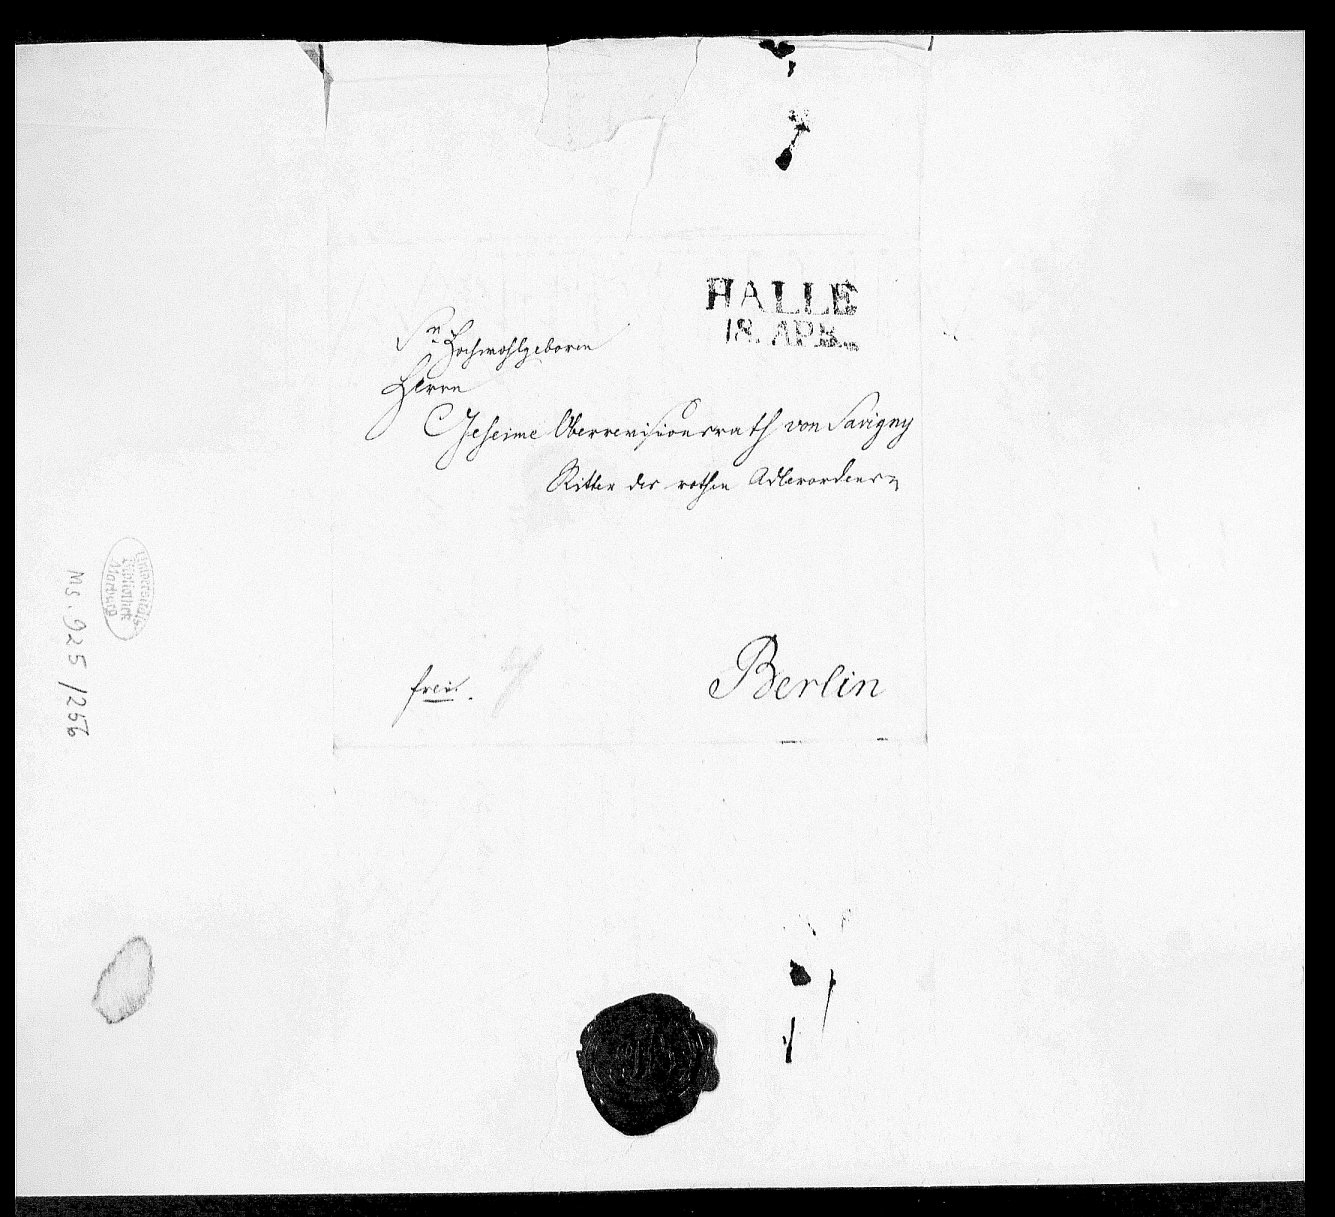 HALLE
18. APR.
Sr. Hochwohlgeboren
Herrn
Geheime Oberrevisionsrath von Savigny
Ritter des rothen Adlerordens
frei.
Berlin
Universitäts
Bibliothek
Marburg
Ms. 925/1256